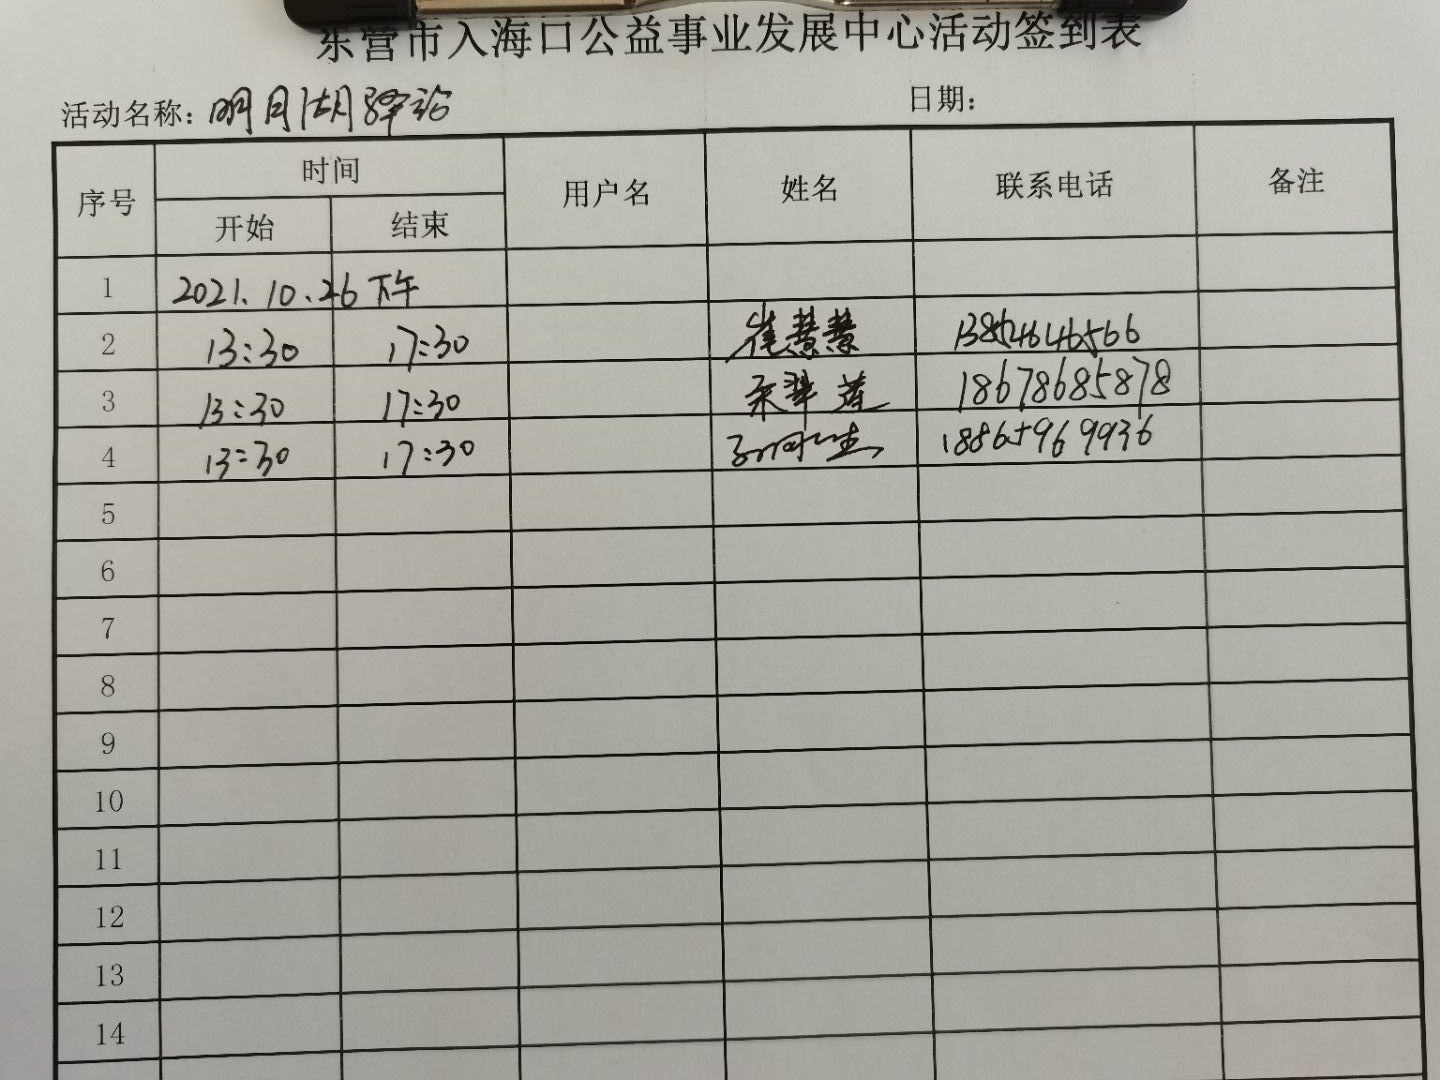 东营市入海口公益事业发展中心活动签到表
活动名称：明月湖驿站 日期：
序号 时间 用户名 姓名 联系电话 备注
开始 结束
1 2021.10.26下午
2 13:30 17:30 崔慧慧 13854646566
3 13:30 17:30 莲 18678685878
4 13:30 17:30 18865969936
5
6
7
8
9
10
11
12
13
14